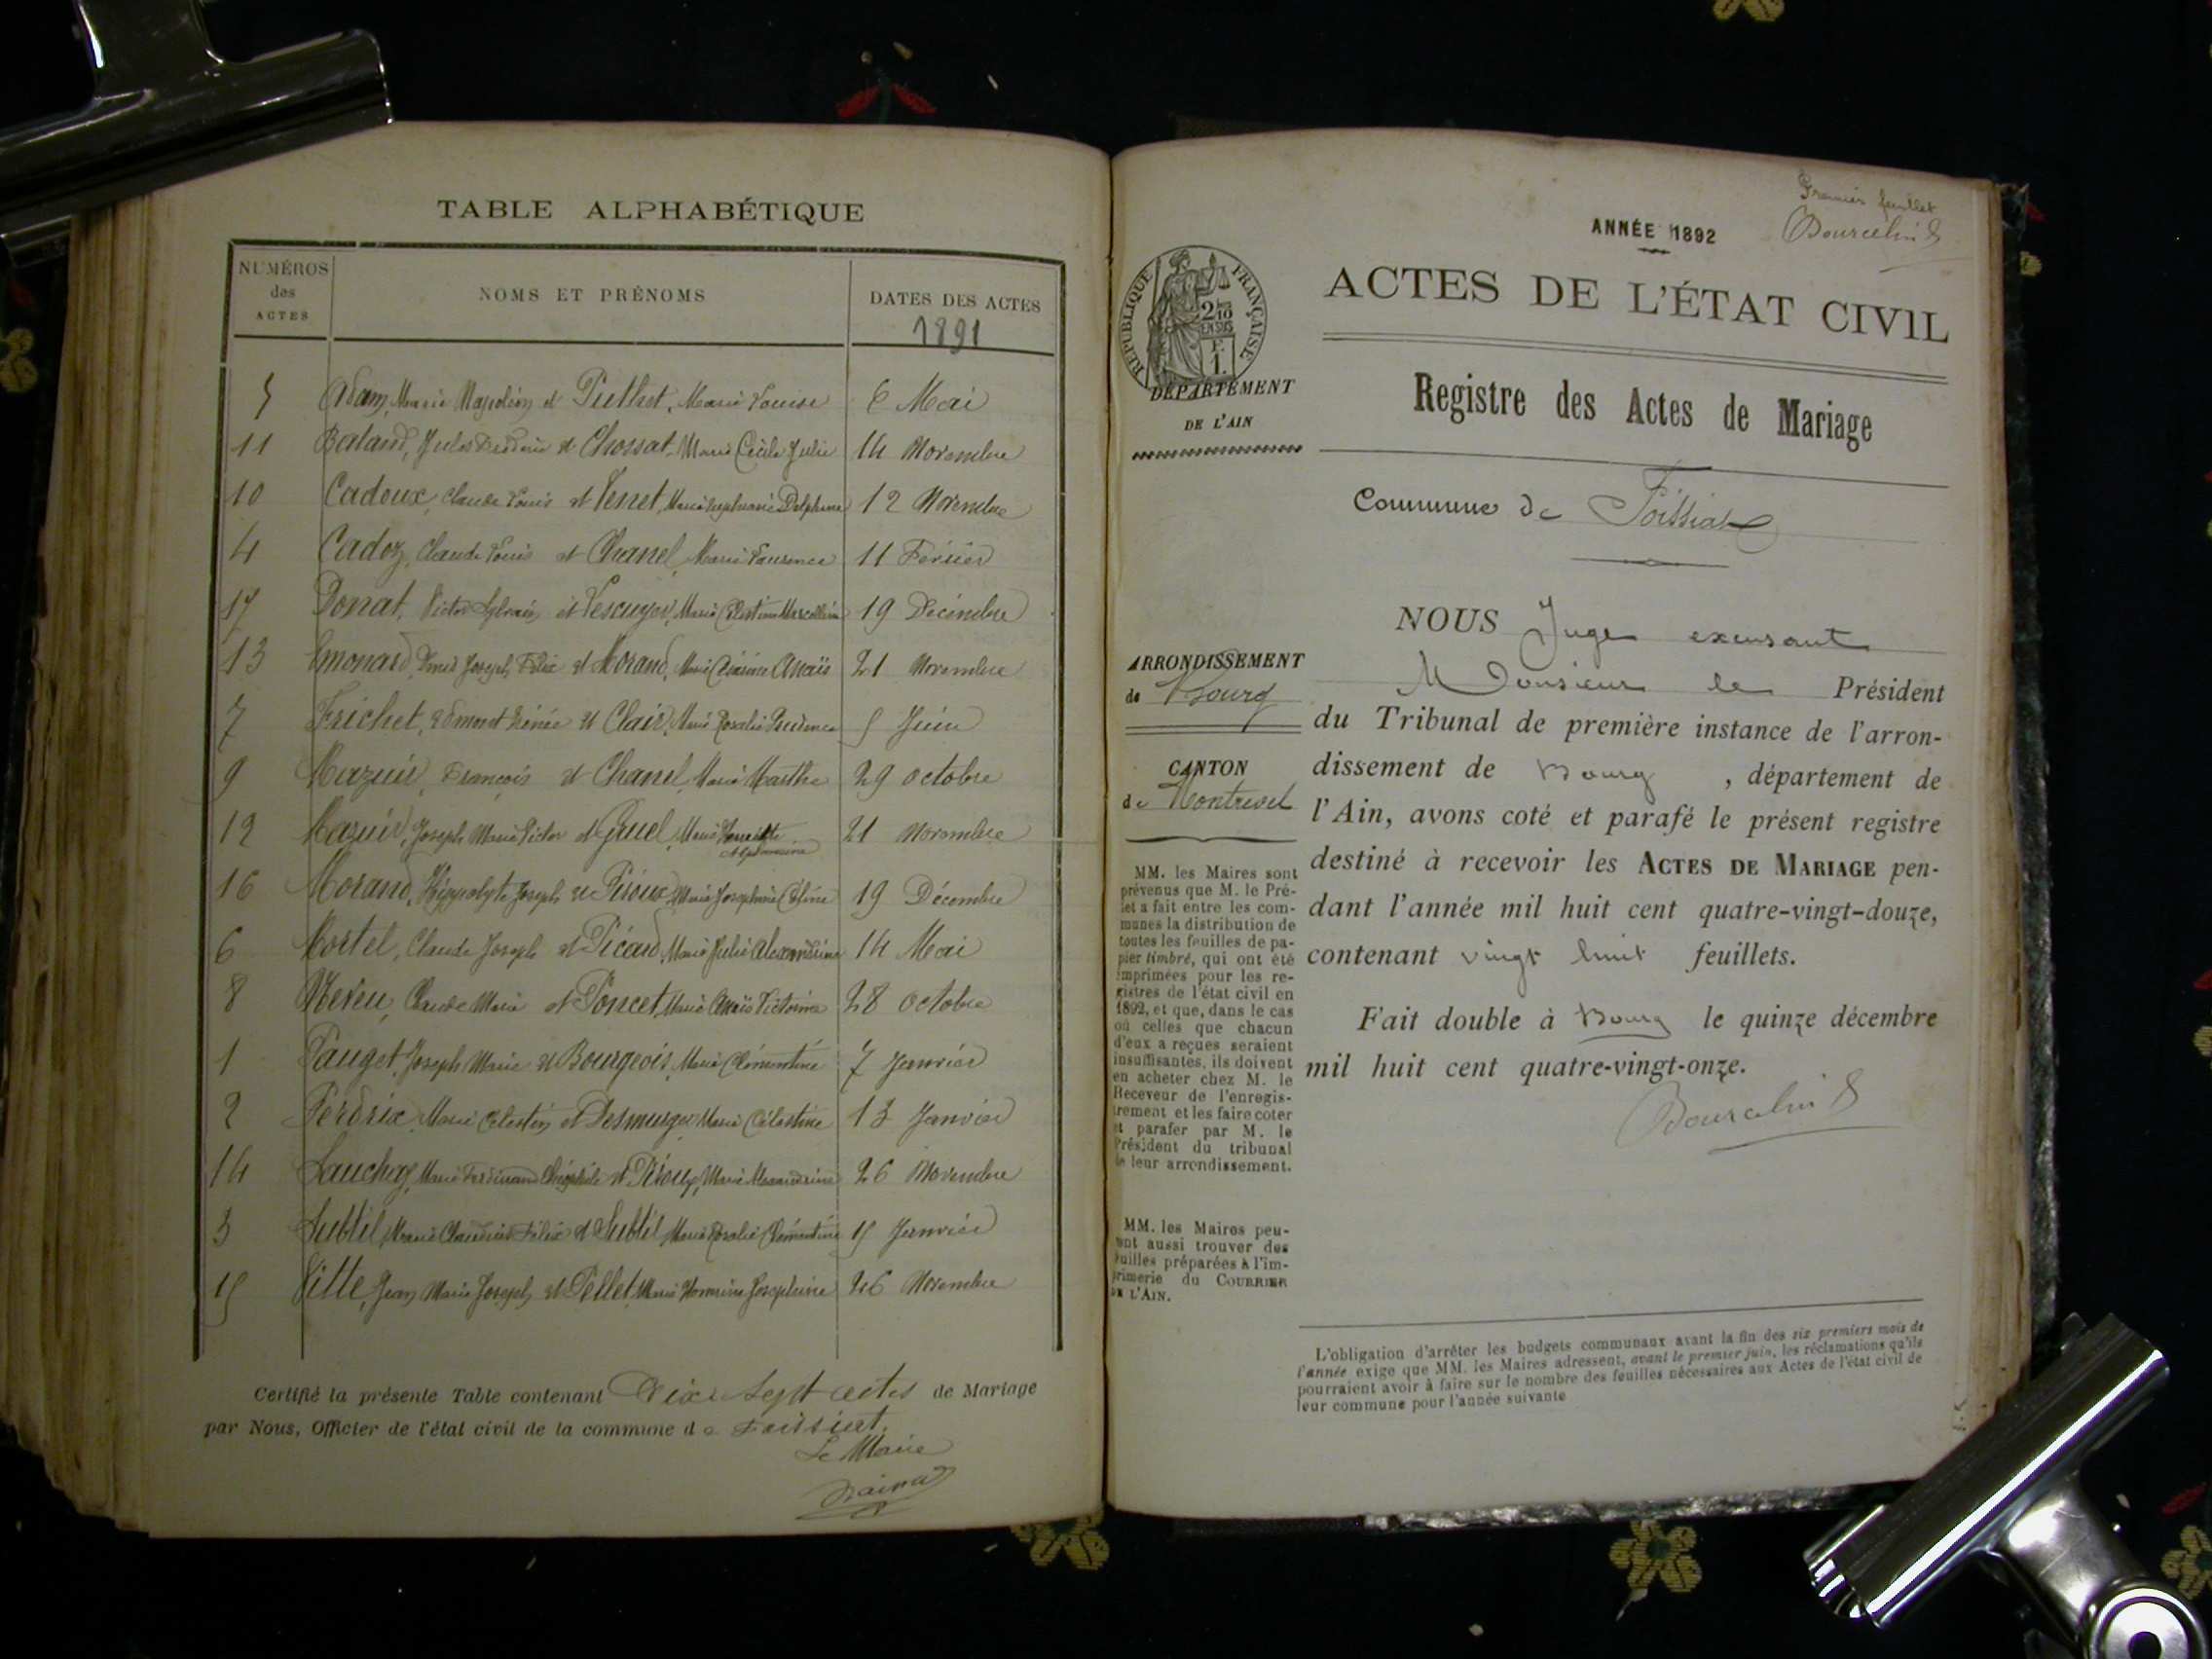 TABLE ALPHABÉTIQUE
NUMÉROS des ACTES
NOMS ET PRÉNOMS
DATES DES ACTES
1891
5 Adam, Marie Napoléon et Puthet, Marie Louise 6 Mai
11 Baland, Jules et Chossat, Marie Cécile Julie 14 Novembre
10 Cadoux, Claude Louis et Venet, Marie Delphine 12 Novembre
4 Cadoz, Claude Louis et Chanel, Marie Laurence 11 Février
17 Donat, Victor Sylvain et Lescuyer, Marie Célestine Marcelline 19 Décembre
13 Emonard, Joseph Félix et Morand, Marie Anaïs 21 Novembre
7 Frichet, Edmond Irénée et Clair, Marie Rosalie Prudence 5 Juin
9 Mazuir, François et Chanel, Marie Marthe 29 octobre
12 Mazuir, Joseph Marie Victor et Marie 21 Novembre
16 Morand, Hippolyte Joseph et Pioux, Marie Josephine Céline 19 Décembre
6 Mortel, Claude Joseph et Picard, Marie Julie Alexandrine 14 Mai
8 Neveu, Claude Marie et Poncet, Marie Anaïs Victorine 28 octobre
1 Pauget, Joseph Marie et Bourgeois, Marie Clémentine 7 Janvier
2 Perdrix, Marie Célestin et Desmurger Marie Célestine 13 Janvier
14 Marie Ferdinand Théophile et Pioux, Marie Alexandrine 26 Novembre
3 Subtil, Marie Claudius Félix et Subtil Marie Rosalie Clémentine 15 Janvier
15 Vitte, Jean Marie Joseph et Pellet, Marie Josephine 26 Novembre
Certifié la présente Table contenant Dix Sept actes de Mariage
par Nous, Officier de l'état civil de la commune de Foissiat.
Le Maire
Premier feuillet
Bourcelin
ANNÉE 1892
RÉPUBLIQUE FRANÇAISE
2/10 EN SUS
F. 1.
ACTES DE L'ÉTAT CIVIL
Registre des Actes de Mariage
DÉPARTEMENT
DE L'AIN
Commune de Foissiat
NOUS Juge excusant
Monsieur le Président
du Tribunal de première instance de l'arron-
dissement de Bourg, département de
l'Ain, avons coté et parafé le présent registre
destiné à recevoir les ACTES DE MARIAGE pen-
dant l'année mil huit cent quatre-vingt-douze,
contenant vingt huit feuillets.
Fait double à Bourg le quinze décembre
mil huit cent quatre-vingt-onze.
Bourcelin
ARRONDISSEMENT
de Bourg
CANTON
de Montrevel
MM. les Maires sont
prévenus que M. le Pré-
fet a fait entre les com-
munes la distribution de
toutes les feuilles de pa-
pier timbré, qui ont été
imprimées pour les re-
gistres de l'état civil en
1892, et que, dans le cas
où celles que chacun
d'eux a reçues seraient
insuffisantes, ils doivent
en acheter chez M. le
Receveur de l'enregis-
trement et les faire coter
et parafer par M. le
Président du tribunal
de leur arrondissement.
MM. les Maires peu-
vent aussi trouver des
feuilles préparées à l'im-
primerie du COURRIER
DE L'AIN.
L'obligation d'arrêter les budgets communaux avant la fin des six premiers mois de
l'année exige que MM. les Maires adressent, avant le premier juin, les réclamations qu'ils
pourraient avoir à faire sur le nombre des feuilles nécessaires aux Actes de l'état civil de
leur commune pour l'année suivante